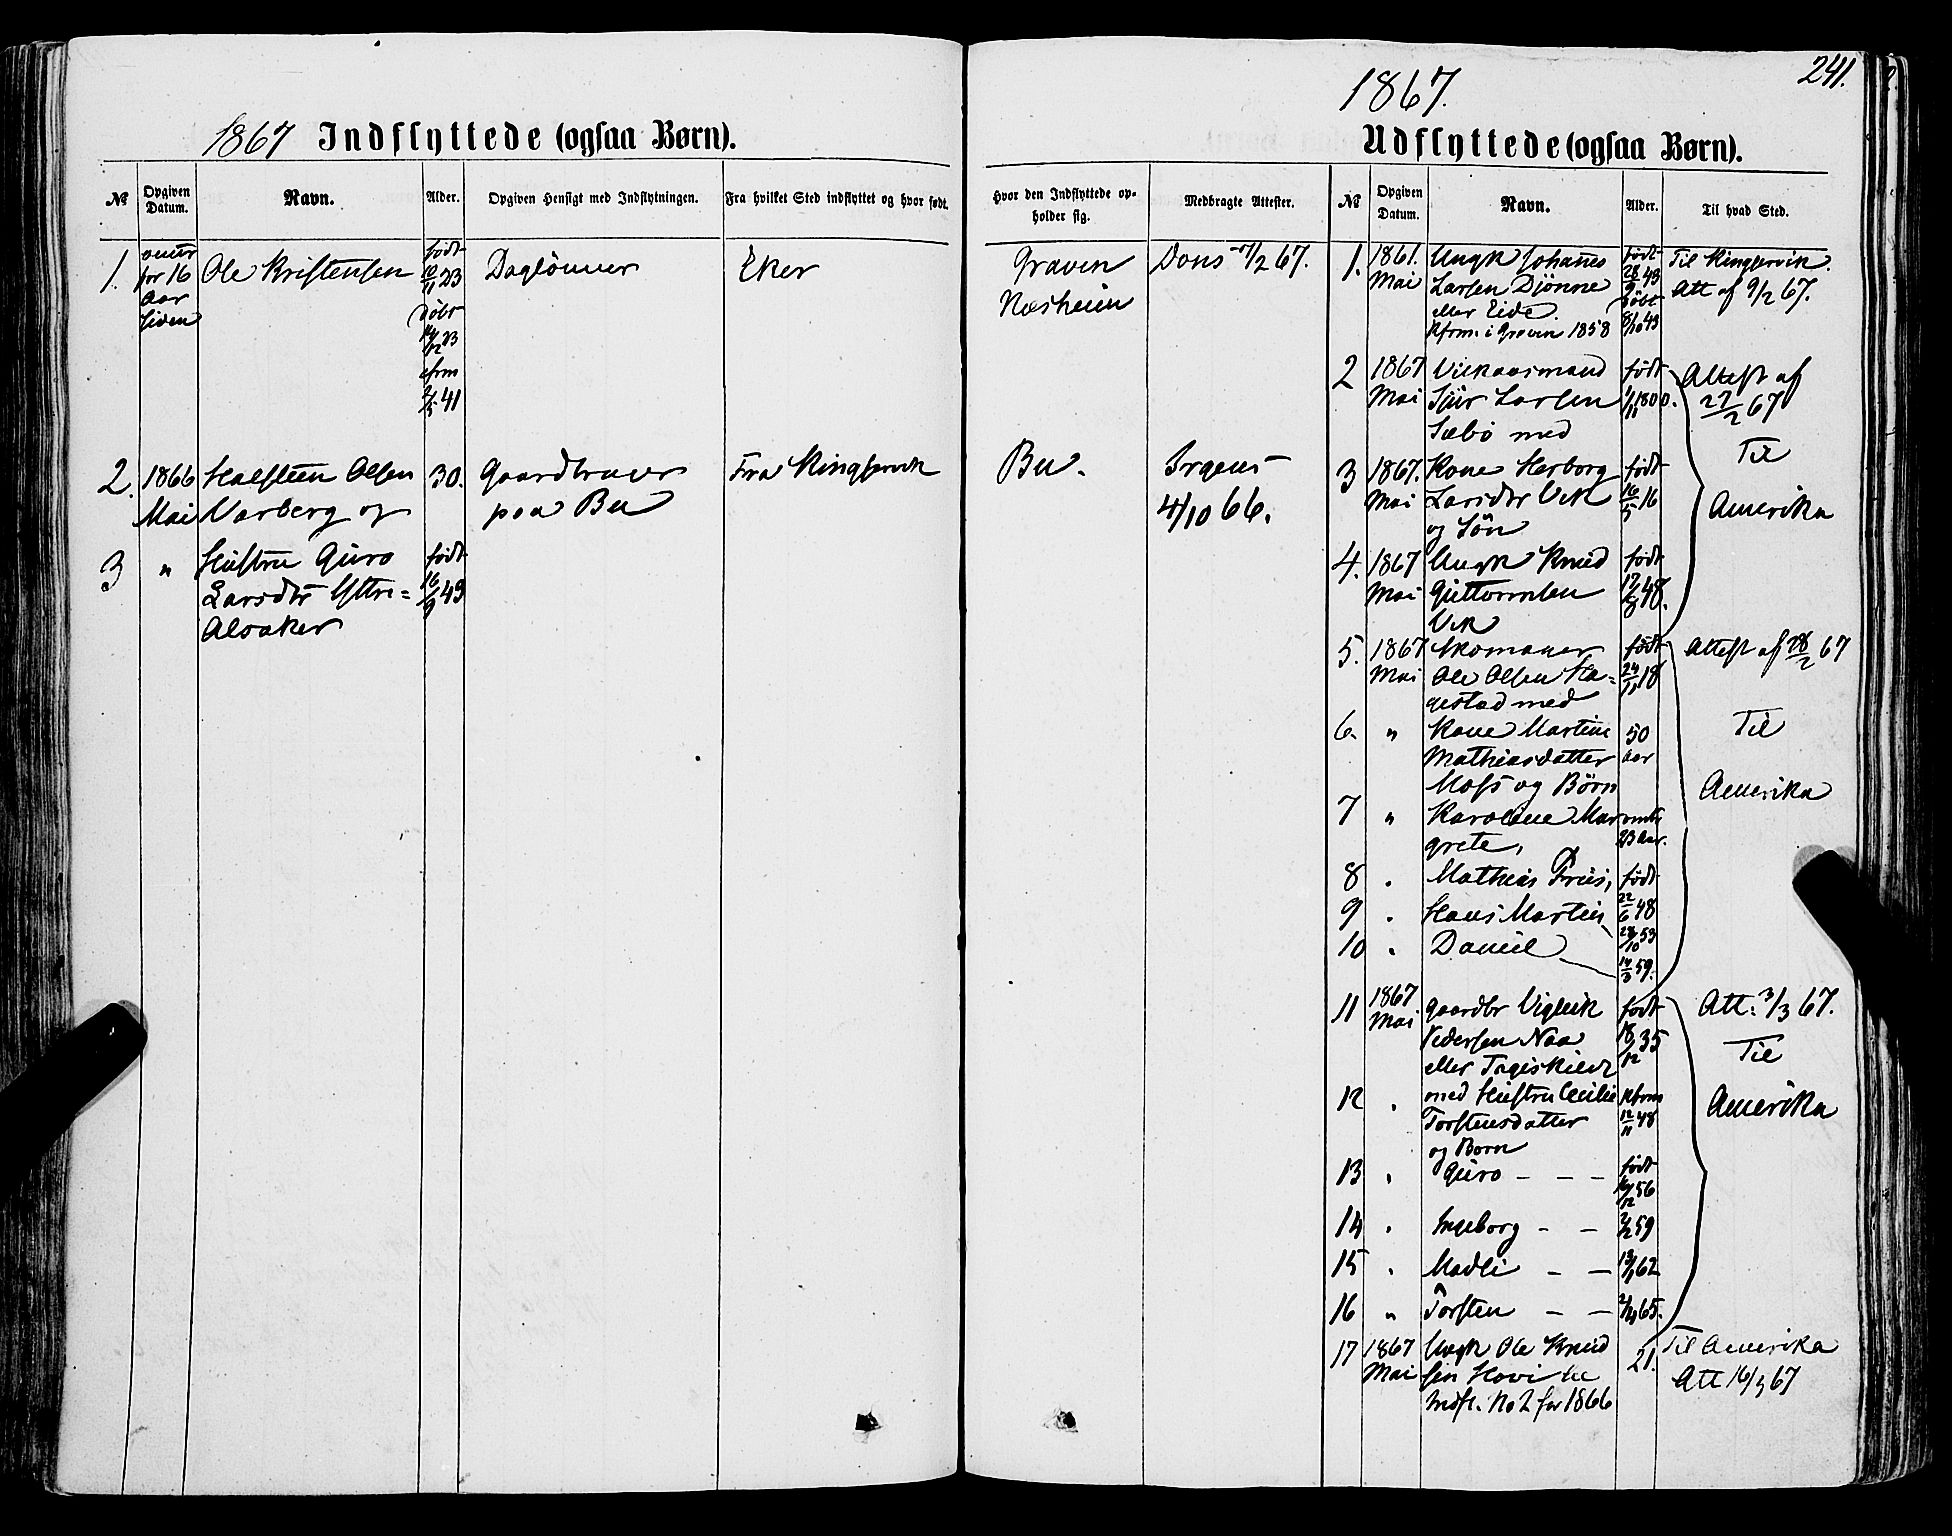 241.
1867.
1867 Indflyttede (ogsaa Børn).
Udflyttede (ogsaa Børn).
No
Opgiven Datum.
Navn.
Alder.
Opgiven Hensigt med Indflytningen.
Fra hvilket Sted indflyttet og hvor født.
Hvor den Indflyttede opholder sig.
Medbragte Attester.
No
Opgiven Datum.
Navn.
Alder.
Til hvad Sted.
1.
for 16
Aar
siden
Ole Kristensen
født
23
døbt
23
cfrm
41
Daglönner
Eker
Graven
Næsheim
Dons 67.
2.
1866
Mai
Halsteen Olsen
Varberg og
30.
Gaardbruger
paa Bu
Fra Kingservik
Bu.
Irgens
4/10 66.
3
"
Hustru Guro
Larsdtr Ystre=
Alsaker
født
16/9 43
1.
1861.
Mai
Ungk Johañes
Larsen Djönne
eller Eide.
Kfrm. i Graven 1858
født
28/9 43
døbt
8/10 43
Til Kingservik.
Att af 9/2 67.
2
1867
Mai
Vilkaarsmand
Sjur Larsen
Sæbö med
født
1/11 1800.
Attest af
27/2 67
Til
Amerika
3
1867.
Mai
Kone Herborg
Larsdtr Vik
og Sön
født
16/5 16
4.
1867
Mai
Ungk Knud
Guttormsen
Vik
født
17/8 48.
5.
1867
Mai
Skomager
Ole Olsen Ha=
gestad med
født
24/11 18
Attest af 28/2 67
Til
Amerika
6.
"
Kone Martine
Mathiasdatter
Moss og Børn
50
Aar
7
"
Karoline Mar
grete,
omtr
23 Aar.
8
"
Mathias Friis,
født
22/6 48
9
"
Hans Martin
28/10 53
10
"
Daniel
14/3 59.
11
1867
Mai
Gaardbr Vigleik
Pedersen Naa
eller Tregiskiledt
født
18/12 35
Att: 3/3 67.
Til
Amerika
12
"
med Hustru Cecilie
Torstensdatter
og Børn
Kfrm
12/11 48
13
"
Guro - - -
født
56
14
"
Ingeborg - -
59
15
"
Madli - -
62
16
"
Torsten - -
65.
17
1867
Mai
Ungk Ole Knud
sen Hovi
Indfl. No 2 for 1866
21.
Til Amerika
Att 16/3 67